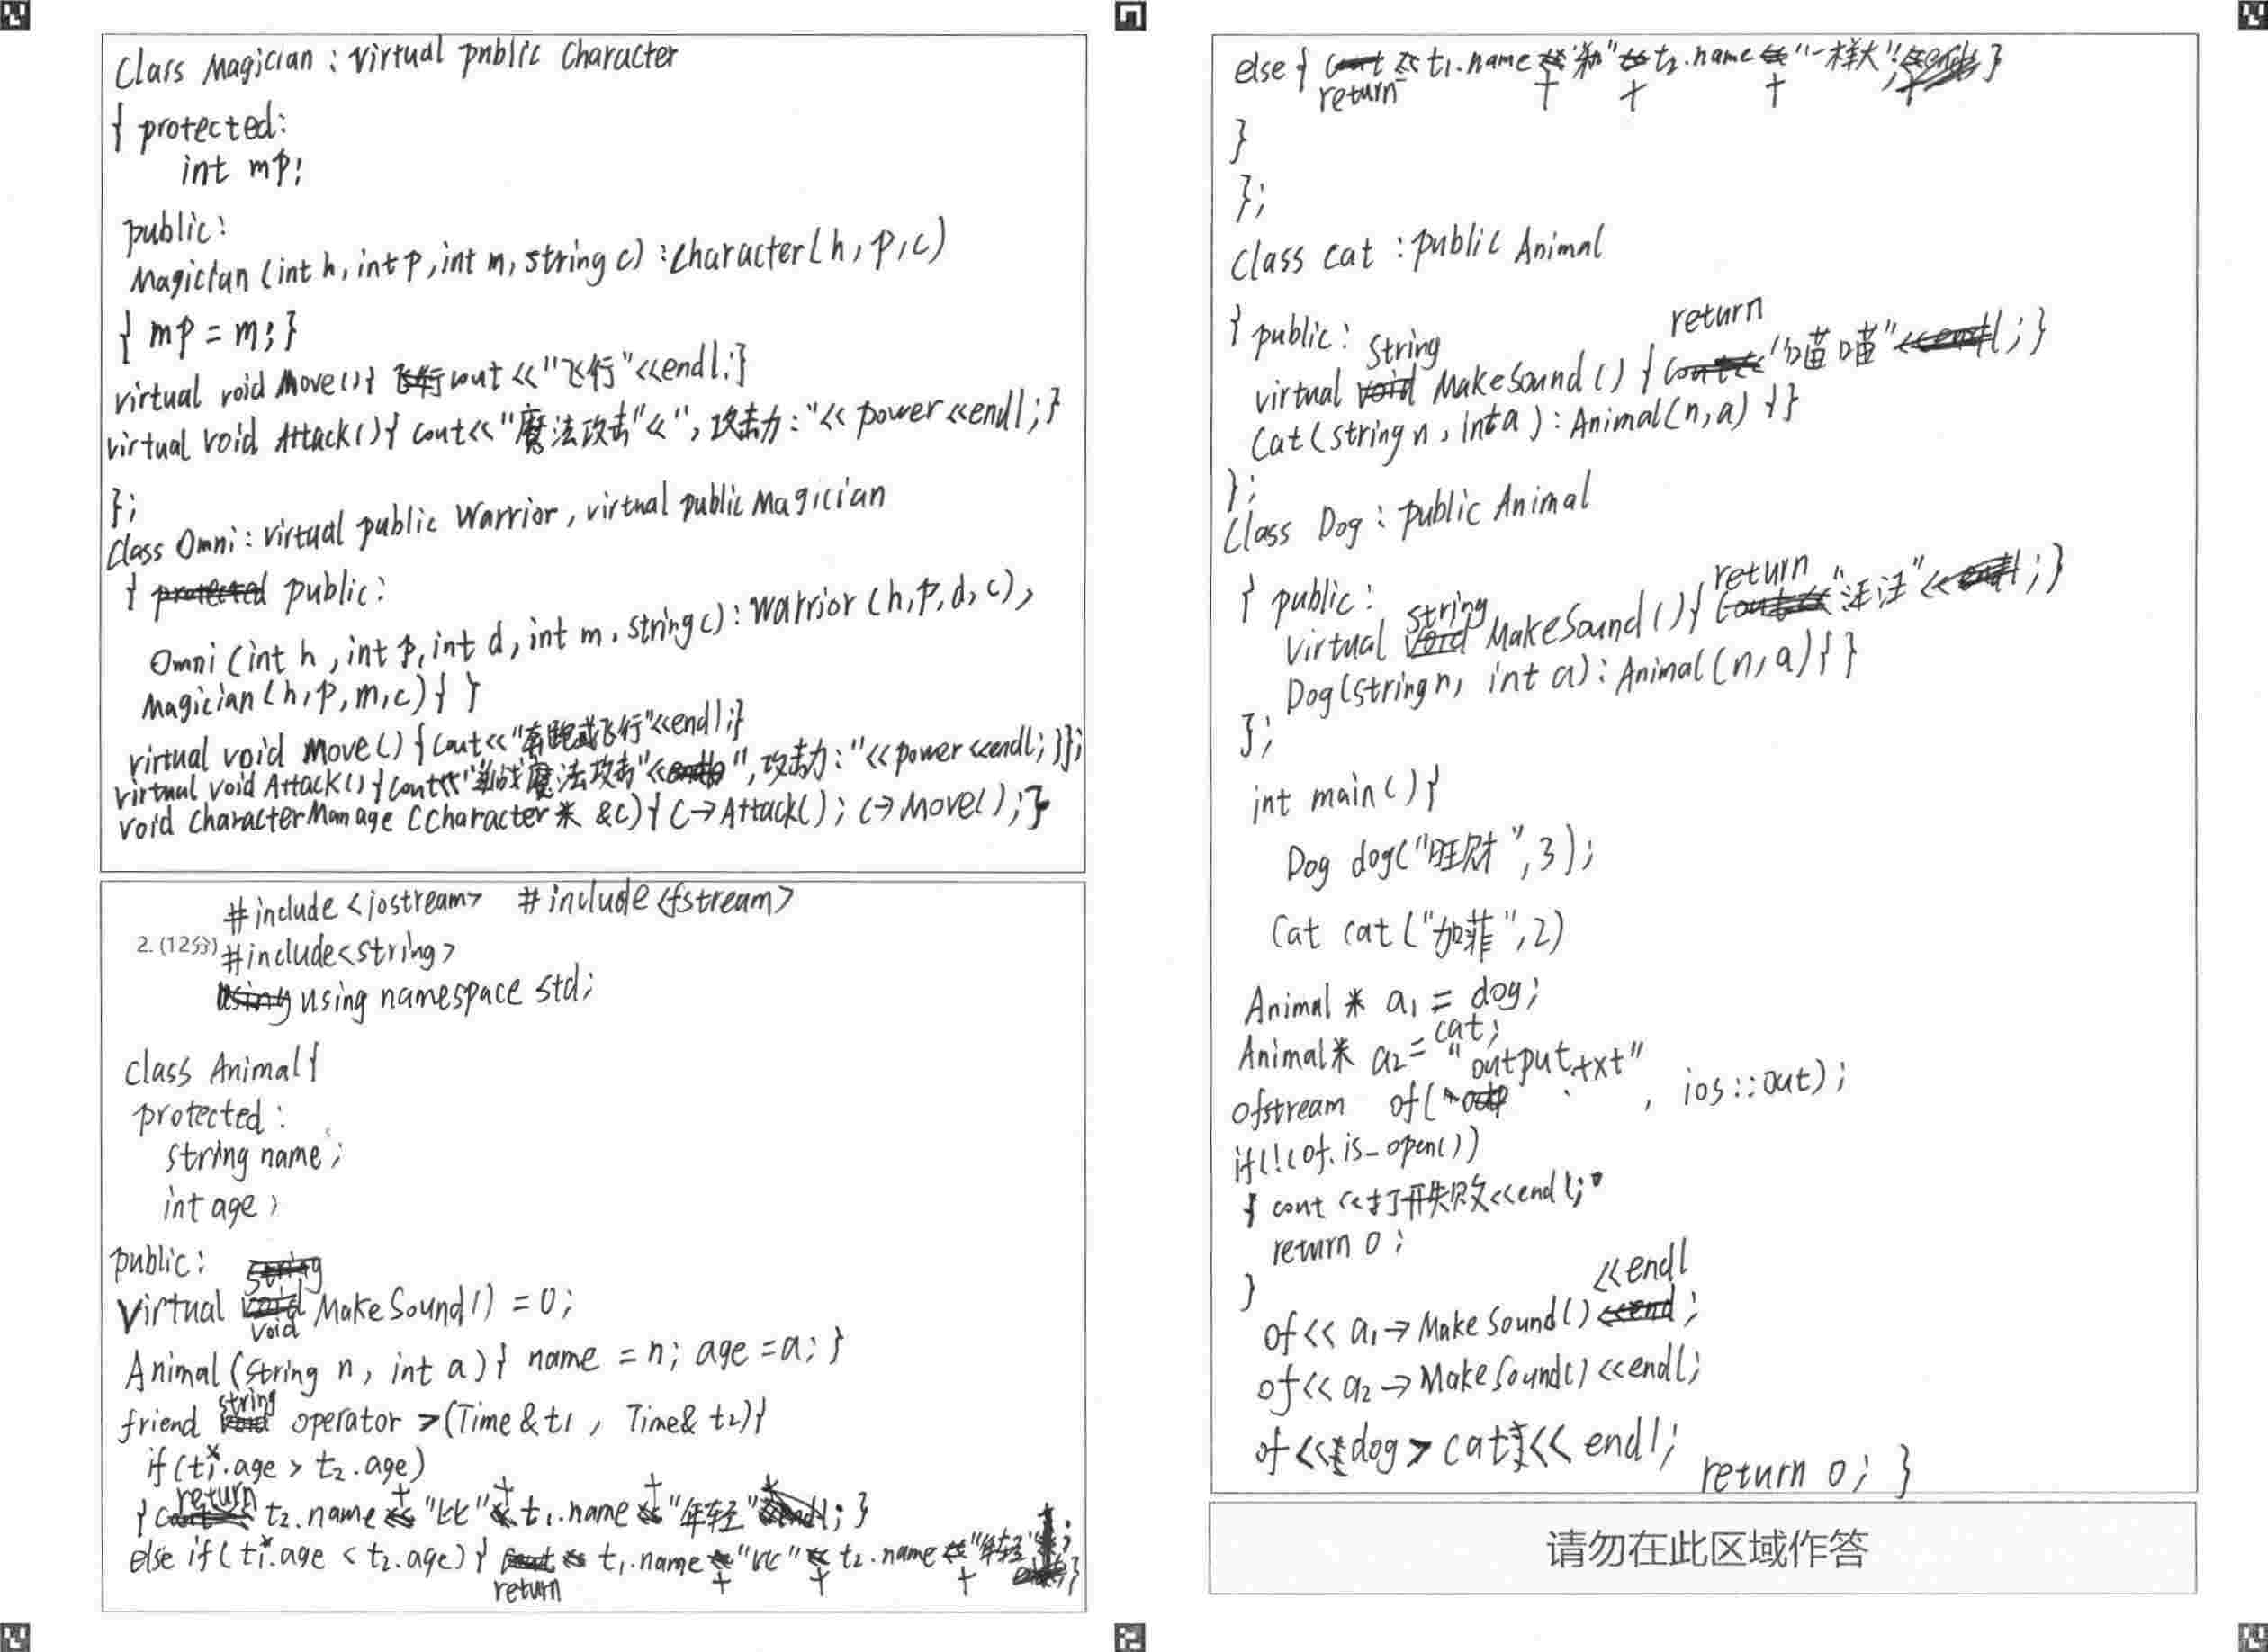 class Magician : virtual public Character
{ protected:
int mp;
public:
Magician (int h, int p, int m, string c) : Character(h, p, c)
{ mp = m; }
virtual void Move(){ cout << "飞行"<<endl;}
virtual void Attack(){ cout<< "魔法攻击"<<", 攻击力: "<< power <<endl; }
};
class Omni : virtual public Warrior, virtual public Magician
{ public:
Omni (int h, int p, int d, int m, string c) : Warrior (h, p, d, c),
Magician (h, p, m, c) { }
virtual void Move() { cout<< "奔跑或飞行"<<endl;}
virtual void Attack() { cout<< "近战魔法攻击"<< ", 攻击力: "<<power <<endl; }};
void CharacterManage (Character * &c) { c->Attack(); c->Move(); }
#include <iostream> #include <fstream>
2. (12分) #include<string>
using namespace std;
class Animal{
protected:
string name;
int age;
public:
virtual void MakeSound() = 0;
Animal (string n, int a) { name = n; age = a; }
friend string operator > (Time & t1, Time& t2){
if (t1.age > t2.age)
{ return t2.name + "比" + t1.name + "年轻"; }
else if (t1.age < t2.age) { return t1.name + "比" + t2.name + "年轻"; }
else { return t1.name + "和" + t2.name + "一样大"; }
}
};
class Cat : public Animal
{ public:
virtual string MakeSound() { return "喵喵"; }
Cat (string n, int a) : Animal(n, a) { }
};
class Dog : public Animal
{ public:
virtual string MakeSound() { return "汪汪"; }
Dog(string n, int a) : Animal(n, a) { }
};
int main() {
Dog dog("旺财", 3);
Cat cat ("加菲", 2)
Animal * a1 = dog;
Animal* a2 = cat;
ofstream of( "output.txt", ios::out);
if(!(of.is_open())
{ cout <<打开失败<<endl;
return 0;
}
of<< a1->MakeSound() <<endl;
of<< a2->MakeSound() <<endl;
of <<{dog > cat}<< endl;
return 0; }
请勿在此区域作答